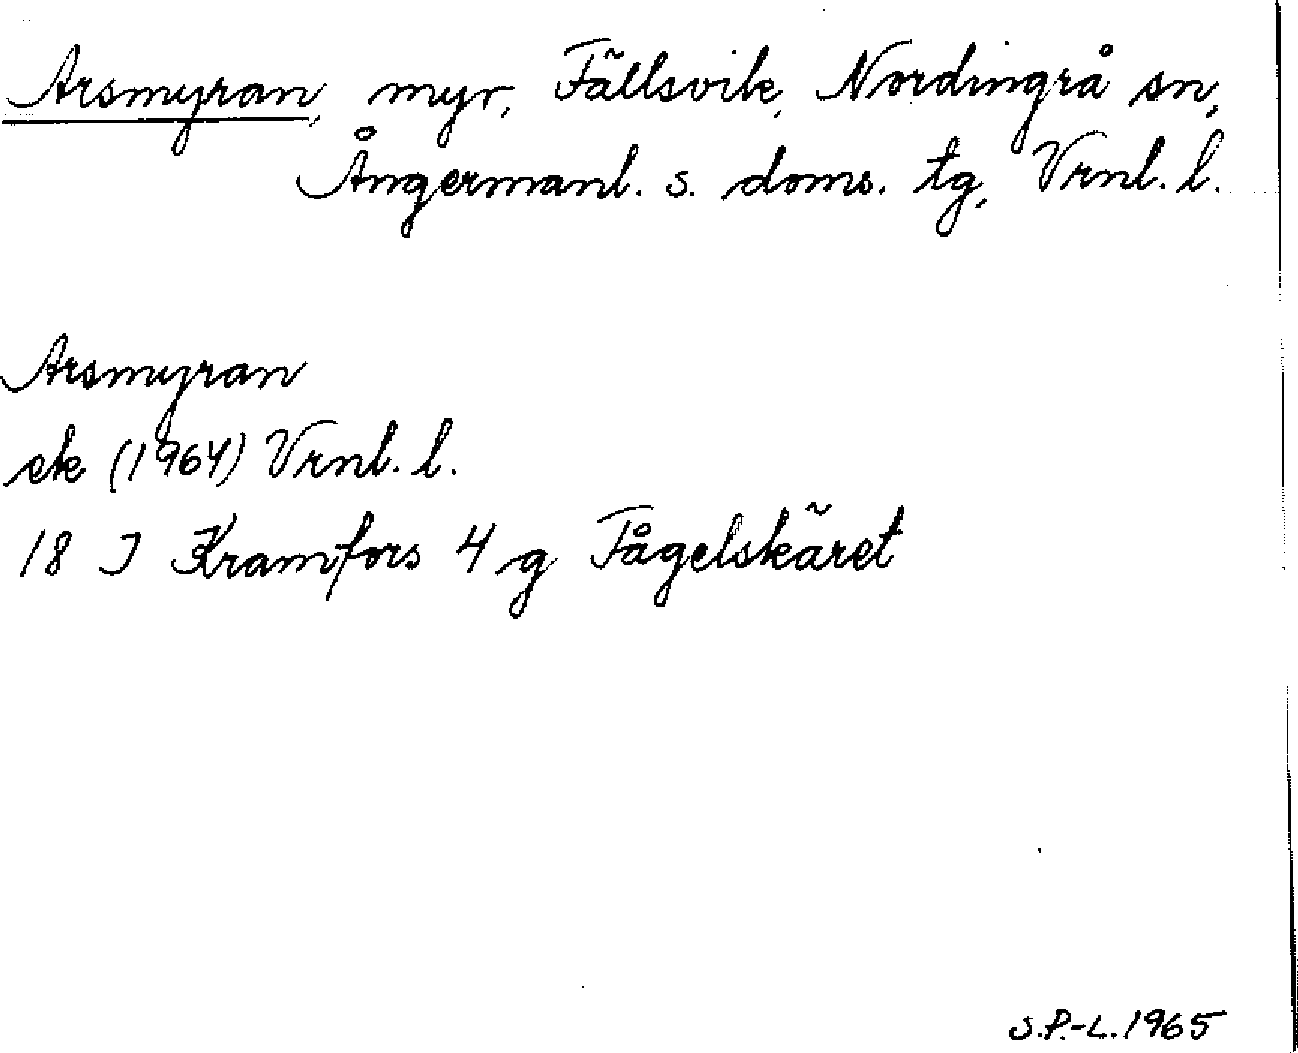 Arsmyran, myr, Fällsvik, Nordingrå sn,
Ångermanl. s. doms. tg, Vrnl. l.
Arsmyran
ek (1964) Vrnl. l.
18 I Kramfors 4 g Fågelskäret
S.P.-L. 1965